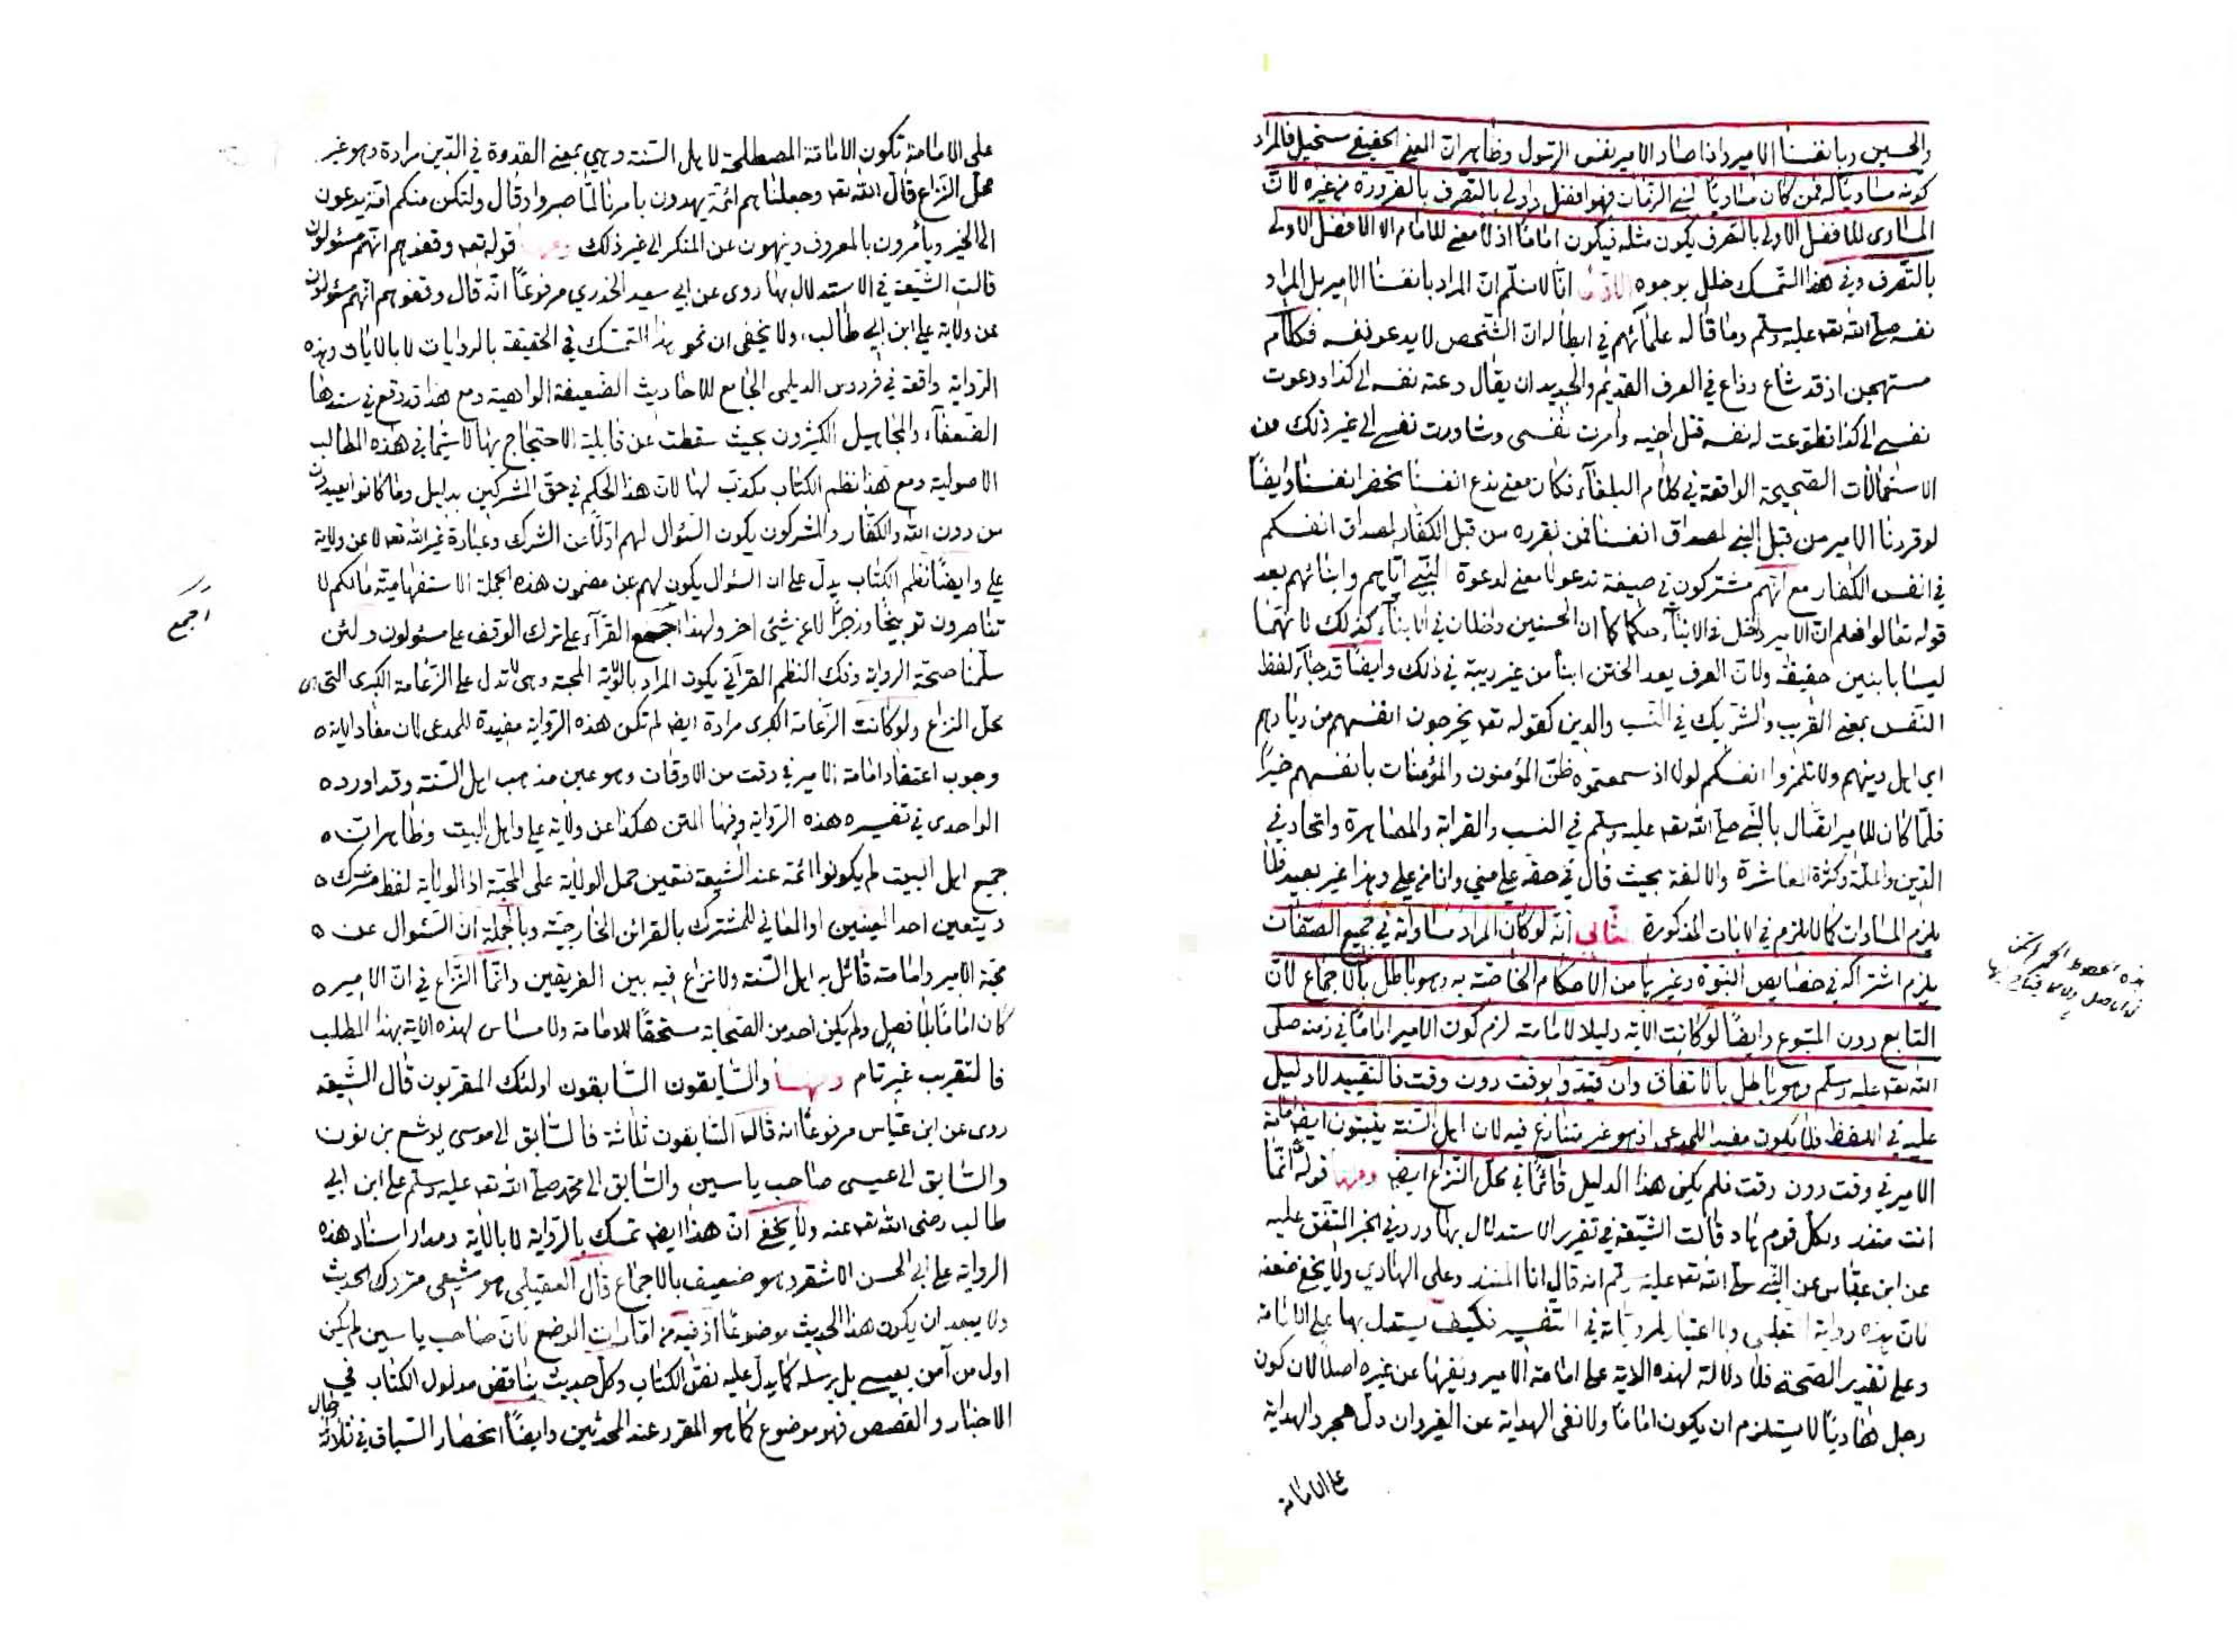 والحسين وبانفسنا الامير واذا صار الامير نفس الرسول وظاهر ان المعنى الحقيقي مستحيل فالمراد
كونه مساويا له فمن كان مساويا لنبي الزمان فهو افضل واولى بالتصرف بالضرورة من غيره لان
المساوى للافضل الاولى بالتصرف يكون مثله فيكون اماما اذ لا معنى للامام الا الافضل الاولى
بالتصرف وفي هذا التمسك خلل بوجوه الاول انا لا نسلم ان المراد بانفسنا الامير بل المراد
نفسه صلى الله تعه عليه وسلم وما قاله علمائهم في ابطاله ان الشخص لا يدعو نفسه فكلام
مستهجن اذ قد شاع وذاع في العرف القديم والجديد ان يقال دعته نفسه الى كذا ودعوت
نفسي الى كذا فطوعت له نفسه قتل اخيه وامرت نفسى وشاورت نفسي الى غير ذلك من
الاستعمالات الصحيحة الواقعة في كلام البلغاء فكان معنى ندع انفسنا نحضر انفسنا وايضا
لو قررنا الامير من قبل النبي لمصداق انفسنا فمن نقرره من قبل الكفار لمصداق انفسكم
في انفس الكفار مع انهم مشتركون في صيغة ندعو لا معنى لدعوة النبي اياهم وابنائهم بعد
قوله تعالوا فعلم ان الامير داخل في الابناء حكما كما ان الحسنين داخلان في الابناء كذلك لانهما
ليسا بابنين حقيقة ولان العرف يعد الختن ابنا من غير ريبة في ذلك وايضا قد جاء لفظ
النفس بمعنى القريب والشريك في النسب والدين كقوله تعه يخرجون انفسهم من ديارهم
اي اهل دينهم ولا تلمزوا انفسكم لولا اذ سمعتموه ظن المؤمنون والمؤمنات بانفسهم خيرا
فلما كان للامير اتصال بالنبي صلى الله تعه عليه وسلم في النسب والقرابة والمصاهرة واتحاد في
الدين والملة وكثرة المعاشرة والالفة بحيث قال في حقه علي مني وانا من علي وهذا غير بعيد فلا
يلزم المساوات كما لا يلزم في الايات المذكورة الثاني انه لو كان المراد مساواته في جميع الصفات
يلزم اشتراكه في خصايص النبوة وغيرها من الاحكام الخاصة به وهو باطل بالاجماع لان
التابع دون المتبوع وايضا لو كانت الاية دليلا لامامته لزم كون الامير اماما في زمنه صلى
الله تعه عليه وسلم وهو باطل بالاتفاق وان قيد بوقت دون وقت فالتقييد لا دليل
عليه في اللفظ فلا يكون مفيدا للمدعى اذ هو غير متنازع فيه لان اهل السنة يثبتون ايضا امامة
الامير في وقت دون وقت فلم يكن هذا الدليل قائما في محل النزاع ايض ومنها قوله انما
انت منذر ولكل قوم هاد قالت الشيعة في تقرير الاستدلال بها ورد في الخبر المتفق عليه
عن ابن عباس عن النبي صلى الله تعه عليه وسلم انه قال انا المنذر وعلي الهادي ولا يخفى ضعفه
فان هذه رواية الثعلبي ولا اعتبار لمروياته في التفسير فكيف يستدل بها على الامامة
وعلى تقدير الصحة فلا دلالة لهذه الاية على امامة الامير ونفيها عن غيره اصلا لان كون
رجل هاديا لا يستلزم ان يكون اماما ولا نفى الهداية عن الغير وان دل مجرد الهداية
على الامامة
على الامامة تكون الامامة المصطلحة لاهل السنة وهي بمعنى القدوة في الدين مرادة وهو غير
محل النزاع قال الله تعه وجعلناهم ائمة يهدون بامرنا لما صبروا وقال ولتكن منكم امة يدعون
الى الخير ويأمرون بالمعروف وينهون عن المنكر الى غير ذلك ومنها قوله تعه وقفوهم انهم مسئولون
قالت الشيعة في الاستدلال بها روى عن ابي سعيد الخدري مرفوعا انه قال وقفوهم انهم مسئولون
عن ولاية علي ابن ابي طالب ولا يخفى ان نحو هذا التمسك في الحقيقة بالروايات لا بالايات وهذه
الرواية واقعة في فردوس الديلمى الجامع للاحاديث الضعيفة الواهية ومع هذا قد وقع في سندها
الضعفاء والمجاهيل الكثيرون بحيث سقطت عن قابلية الاحتجاج بها لا سيما في هذه المطالب
الاصولية ومع هذا نظم الكتاب مكذب لها لان هذا الحكم في حق المشركين بدليل وما كانوا يعبدون
من دون الله والكفار والمشركون يكون السؤال لهم اولا عن الشرك وعبادة غير الله تعه لا عن ولاية
علي وايضا نظم الكتاب يدل على ان السؤال يكون لهم عن مضمون هذه الجملة الاستفهامية مالكم لا
تناصرون توبيخا وزجرا لا عن شئ اخر ولهذا اجمع القرآء على ترك الوقف على مسئولون ولئن
اجمع
سلمنا صحة الرواية وفك النظم القرآني يكون المراد بالولاية المحبة وهى لا تدل على الزعامة الكبرى التى هى
محل النزاع ولو كانت الزعامة الكبرى مرادة ايض لم تكن هذه الرواية مفيدة للمدعى لان مفاد الاية
وجوب اعتقاد امامة الامير في وقت من الاوقات وهو عين مذهب اهل السنة وقد اورد
الواحدى في تفسيره هذه الرواية وفيها المتن هكذا عن ولاية علي واهل البيت وظاهر ان
جميع اهل البيت لم يكونوا ائمة عند الشيعة فتعين حمل الولاية على المحبة اذ الولاية لفظ مشترك
ويتعين احد المعنيين او المعاني للمشترك بالقرائن الخارجية وبالجملة ان السؤال عن
محبة الامير وامامته قائل به اهل السنة ولا نزاع فيه بين الفريقين وانما النزاع في ان الامير
كان اماما بلا فصل ولم يكن احد من الصحابة مستحقا للامامة ولا مساس لهذه الاية بهذا المطلب
فالتقريب غير تام ومنها والسابقون السابقون اولئك المقربون قال الشيعة
روى عن ابن عباس مرفوعا انه قال السابقون ثلاثة فالسابق الى موسى يوشع بن نون
والسابق الى عيسى صاحب ياسين والسابق الى محمد صلى الله تعه عليه وسلم علي ابن ابي
طالب رضى الله تعه عنه ولا يخفى ان هذا ايض تمسك بالرواية لا بالاية ومدار اسناد هذه
الرواية على ابي الحسن الاشقر وهو ضعيف بالاجماع قال العقيلي هو شيعي متروك الحديث
ولا يبعد ان يكون هذا الحديث موضوعا اذ فيه من امارات الوضع فان صاحب ياسين لم يكن
اول من آمن بعيسى بل برسله كما يدل عليه نص الكتاب وكل حديث يناقض مدلول الكتاب في
الاخبار والقصص فهو موضوع كما هو المقرر عند المحدثين وايضا انحصار السباق في ثلاثة